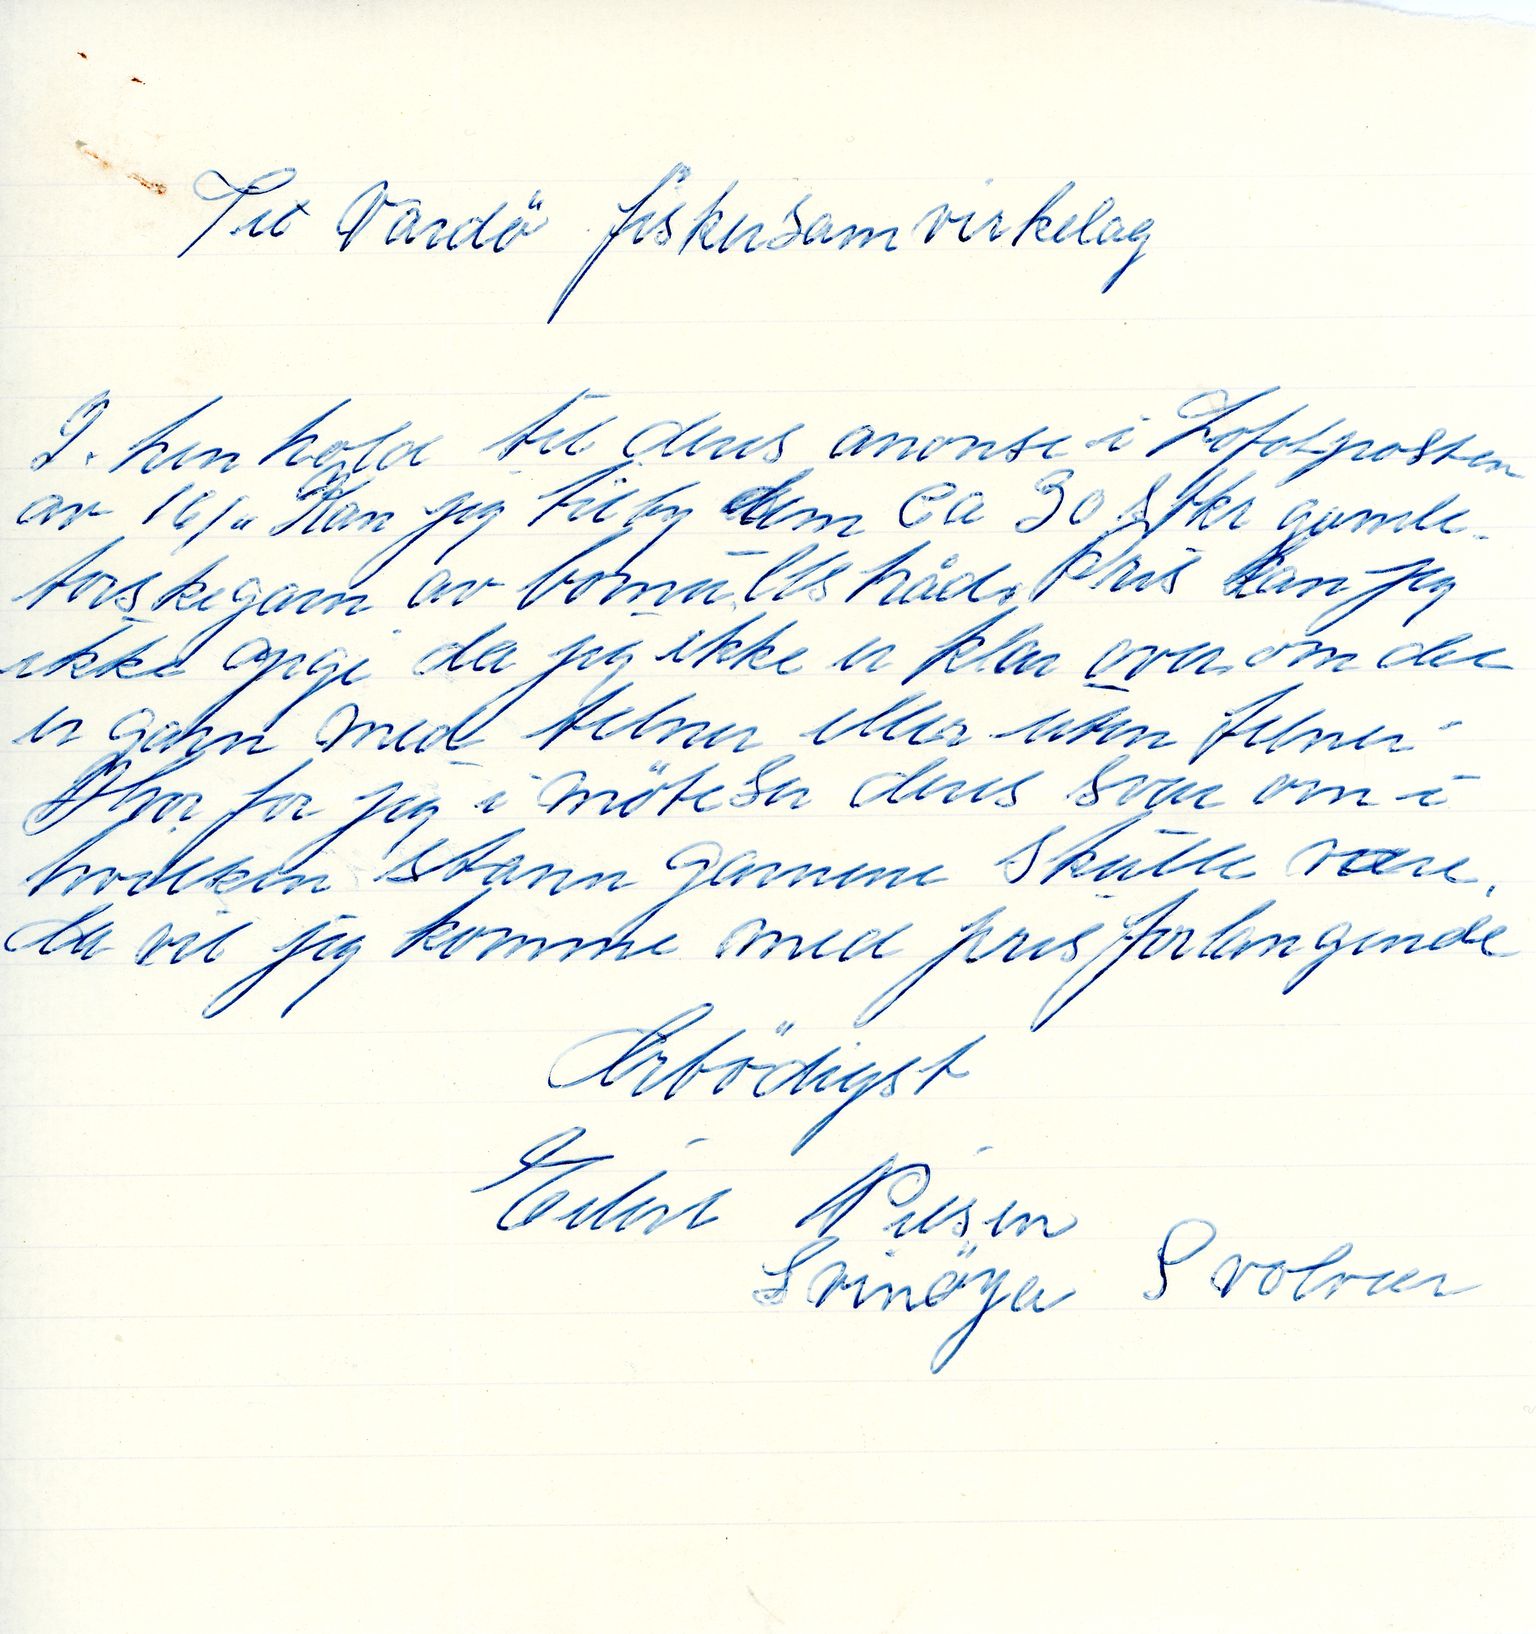 Til Vardö fiskersamvirkelag
I. henhold til deres anonse i Lofotposten
av 16/11 Kan jeg tilby dem Ca 30 stkr gamle
torskegarn av bomullstråd. Pris kan jeg
ikke opgi da jeg ikke er klar over om det
er garn med telner eller uten telner.
Hvor for jeg i möte ser deres svar om i
hvilken stann garnene skulle være.
da vil jeg komme med pris forlangende
Ærbödigst
Nilsen
Svinöya Svolvær